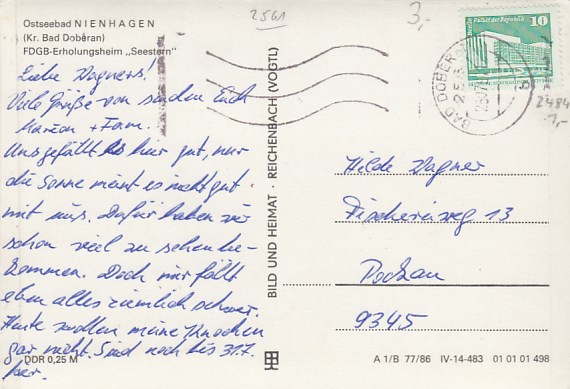 Ostseebad NIENHAGEN
(Kr. Bad Doberan)
FDGB-Erholungsheim „Seestern"
Liebe Wagners!
Viele Grüße von senden Euch
Marion + Fam.
Uns gefällt es hier gut, nur
die Sonne meint es nicht gut
mit uns. Dafür haben wir
schon viel zu sehen be-
kommen. Doch mir fällt
eben alles ziemlich schwer.
Heute wollen meine Knochen
gar nicht. Sind noch bis 31.7.
hier.
DDR 0,25 M
BILD UND HEIMAT · REICHENBACH (VOGTL)
2561
3,-
10
BAD DOBER
2484
1,-
Hilde Wagner
Fischereiweg 13
Pockau
9345
A 1/B 77/86 IV-14-483 01 01 01 498